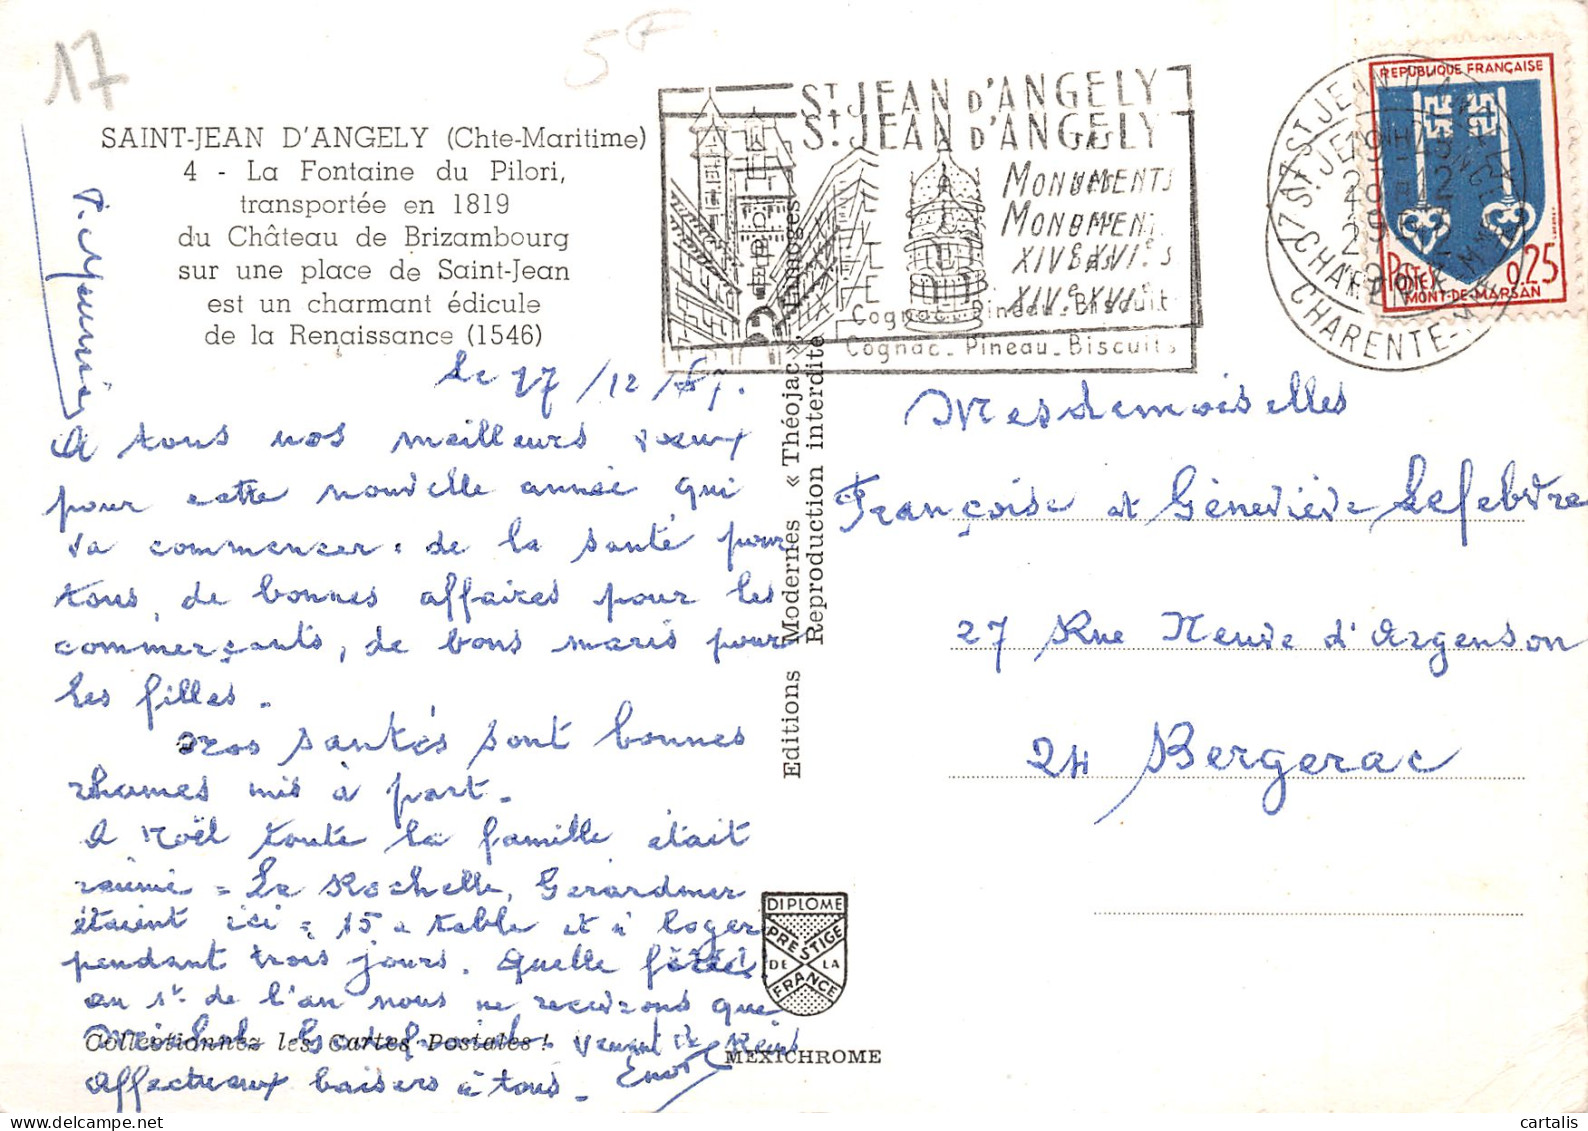 17
5F
SAINT-JEAN D'ANGELY (Chte-Maritime)
4 - La Fontaine du Pilori,
transportée en 1819
du Château de Brizambourg
sur une place de Saint-Jean
est un charmant édicule
de la Renaissance (1546)
ST JEAN D'ANGELY
ST JEAN D'ANGELY
MONUMENTS
MONUMENT
XIV & XVIe S
XIVe XVIe
Cognac_Pineau_Biscuit
Cognac_Pineau_Biscuits
17 ST JEAN D'ANGELY
CHARENTE-MME
REPUBLIQUE FRANÇAISE
POSTES 0,25
MONT-DE-MARSAN
Le 27/12/67.
A tous nos meilleurs vœux
pour cette nouvelle année qui
va commencer : de la santé pour
tous, de bonnes affaires pour les
commerçants, de bons maris pour
les filles.
Nos santés sont bonnes
rhumes mis à part.
A Noël toute la famille était
réunie = La Rochelle, Gérardmer
étaient ici = 15 à table et à loger
pendant trois jours. Quelle
au 1er de l'an nous ne recevrons que
venant de Reims
Affectueux baisers à tous.
Collectionnez les Cartes Postales !
Editions Modernes « Théojac » Limoges
Reproduction interdite
DIPLOME
PRESTIGE
DE LA
FRANCE
MEXICHROME
Mesdemoiselles
Françoise et Géneviève Lefebvre
27 Rue Neuve d'Argenson
24 Bergerac
cartalis